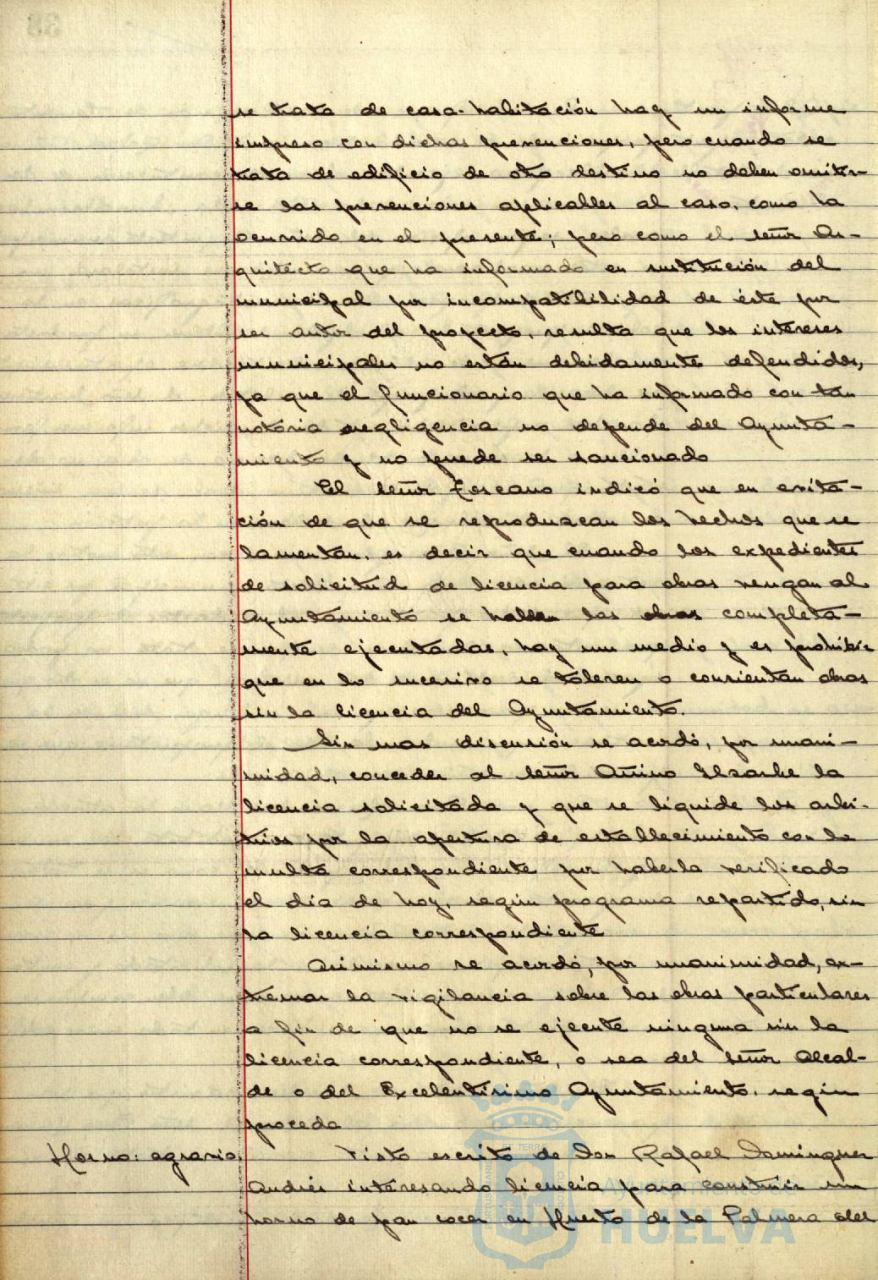 se trata de casa-habitación hay un informe
impreso con dichas prevenciones, pero cuando se
trata de edificio de otro destino no deben omitir-
se las prevenciones aplicables al caso, como ha
ocurrido en el presente; pero como el señor Ar-
quitecto que ha informado en sustitución del
municipal por incompatibilidad de éste por
ser autor del proyecto, resulta que los intereses
municipales no están debidamente defendidos,
ya que el funcionario que ha informado con tan
notoria negligencia no depende del Ayunta-
miento y no puede ser sancionado
El señor Lescano indicó que en evita-
ción de que se reproduzcan los hechos que se
lamentan, es decir que cuando los expedientes
de solicitud de licencia para obras vengan al
Ayuntamiento se hallen las obras completa-
mente ejecutadas, hay un medio y es prohibir
que en lo sucesivo se toleren o consientan obras
sin la licencia del Ayuntamiento.
Sin mas discusión se acordó, por unani-
midad, conceder al señor la
licencia solicitada y que se liquide los arbi-
trios por la apertura de establecimiento con la
multa correspondiente por haberla verificado
el día de hoy, según programa repartido, sin
la licencia correspondiente
Asimismo se acordó, por unanimidad, ex-
tremar la vigilancia sobre las obras particulares
a fin de que no se ejecute ninguna sin la
licencia correspondiente, o sea del señor Alcal-
de o del Excelentísimo Ayuntamiento, según
proceda
Horno: agrario. Visto escrito de don Rafael Dominguez
Andrés interesando licencia para construir un
horno de pan cocer en Huerto de la Palmera del
HUELVA